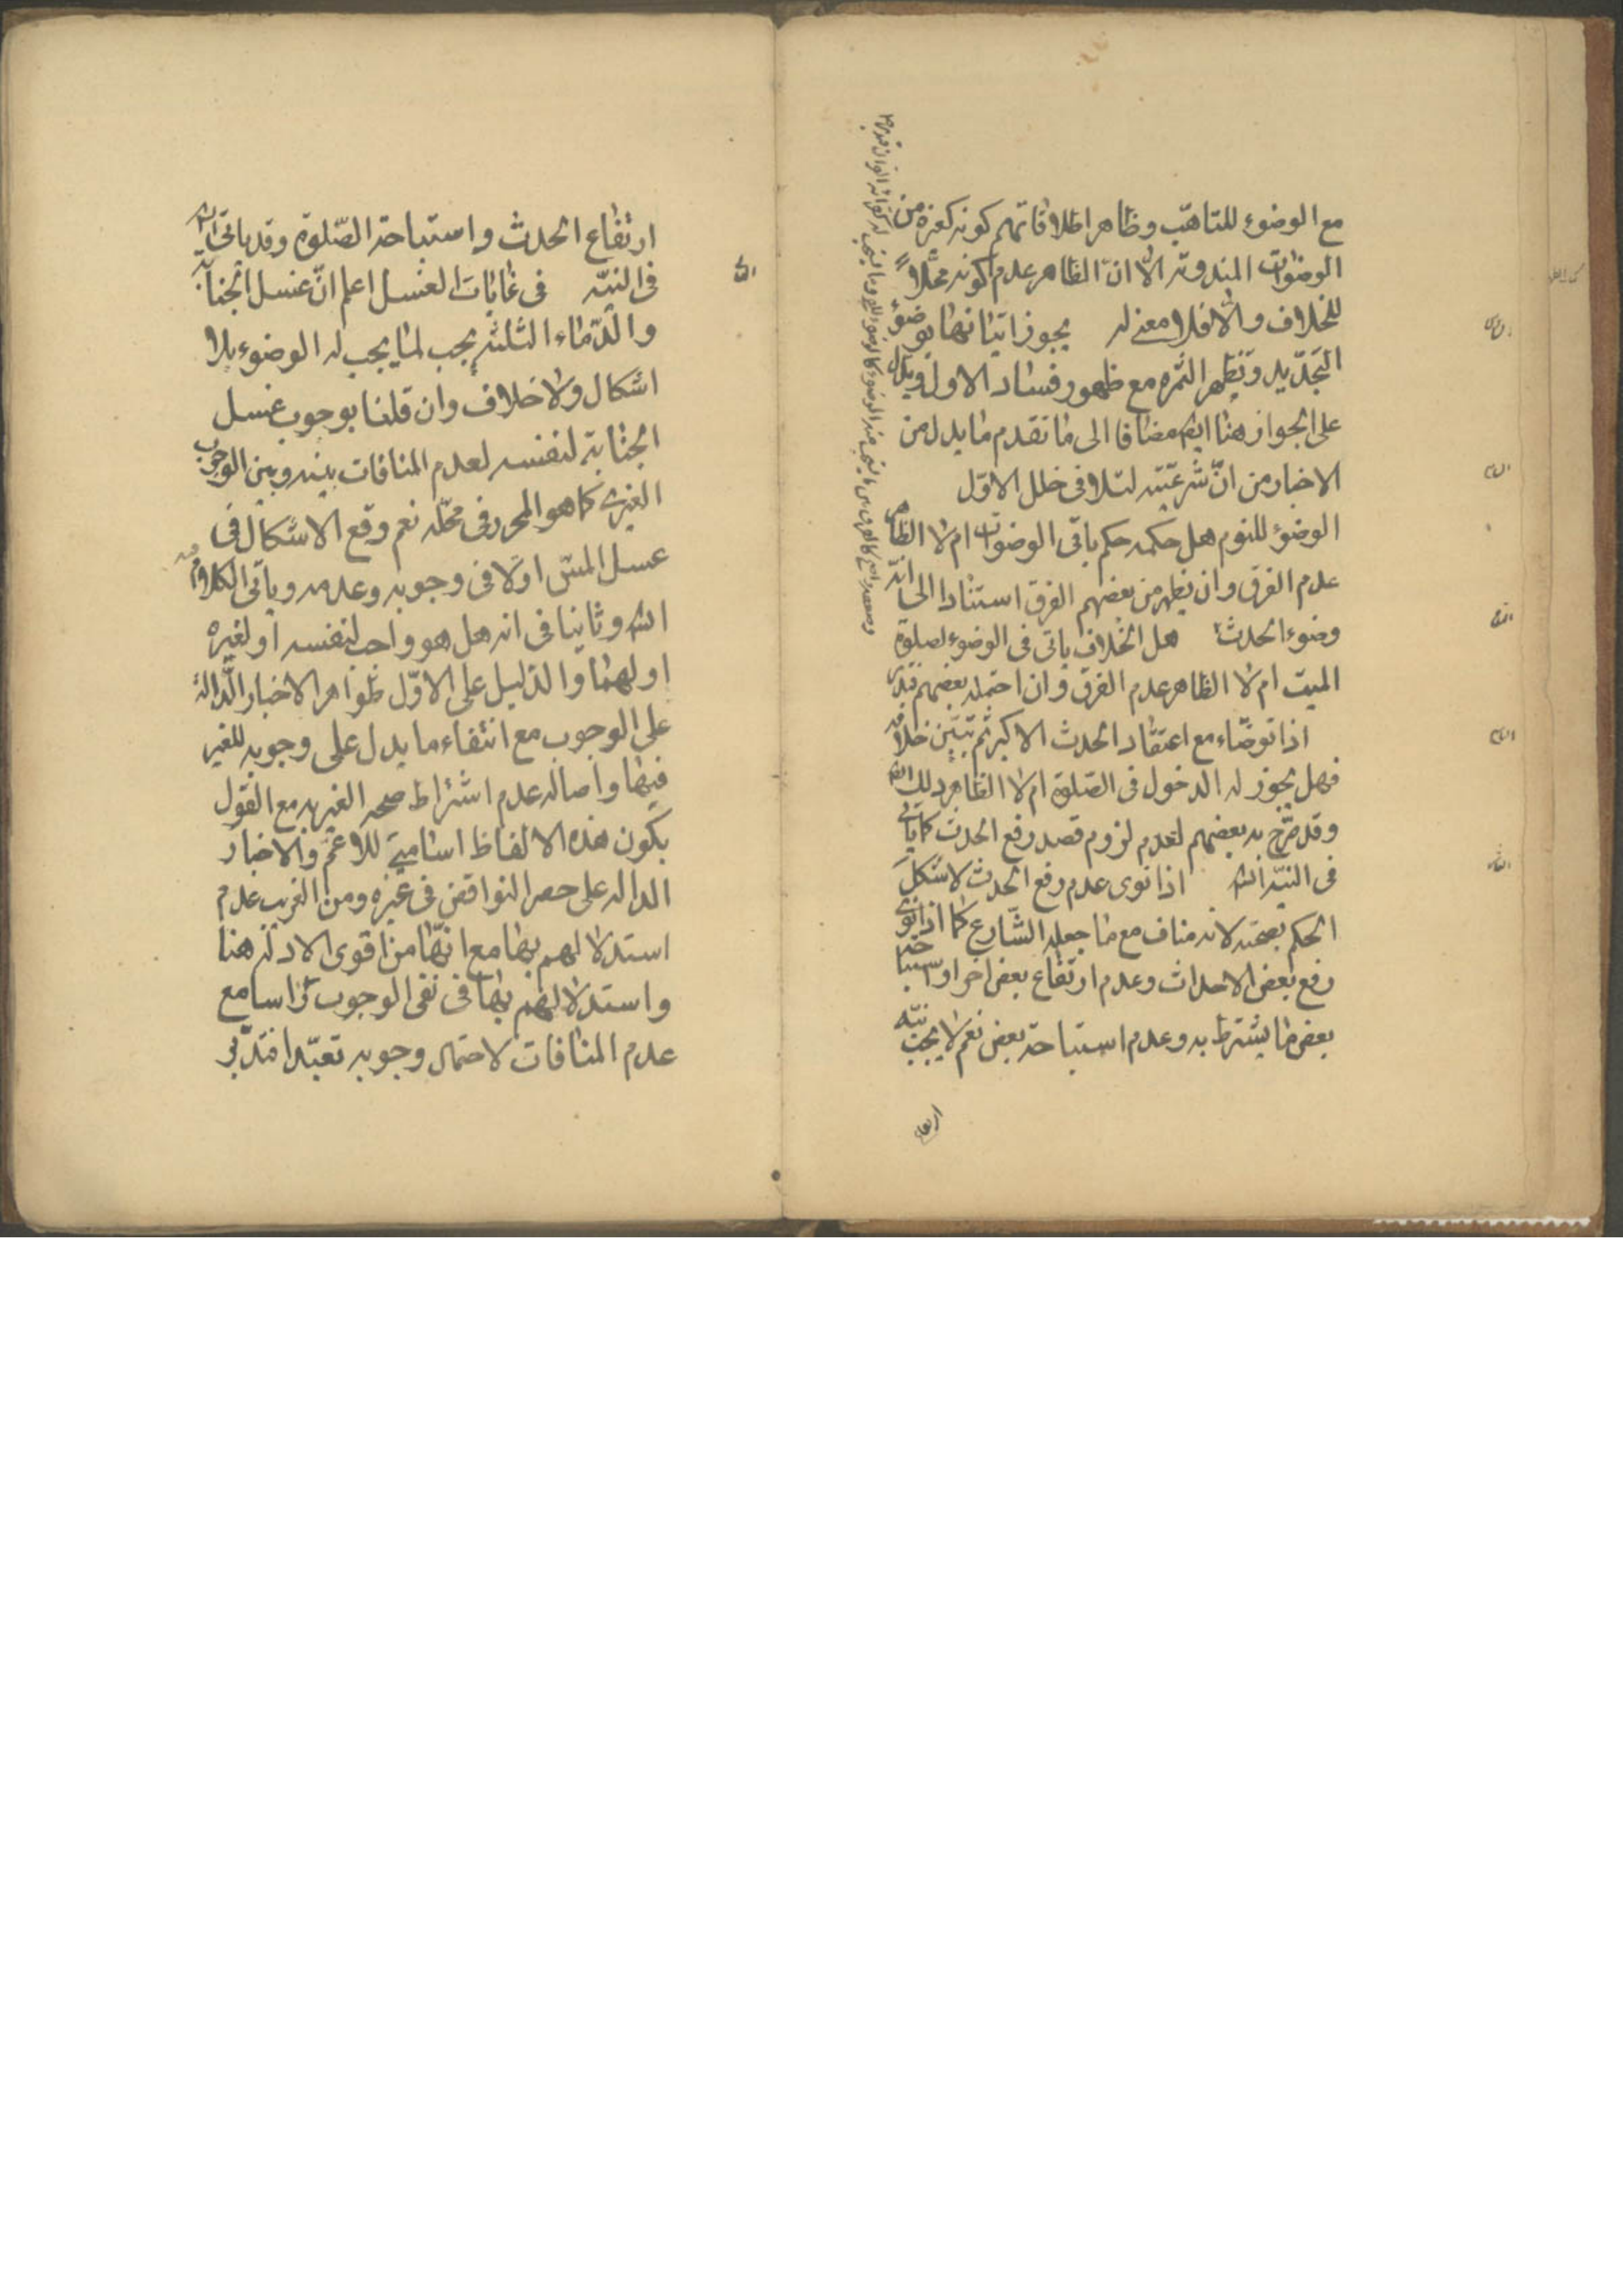 مع الوضوء للتاهّب وظاهر اطلاقاتهم كونه كغيره من
الوضوات المندوبة الّا انّ الظاهر عدم كونه محّلاً
للخلاف والّا فلا معنى له يجوز اتيانها بوضوء
التجديد وتظهر الثمره مع ظهور فساد الاول ويدل
على الجواز هنا ايضا مضافا الى ما تقدم ما يدل من
الاخبار من انّ شرعيّته لتلافى خلل الاوّل
الوضوء للنوم هل حكمه حكم باقى الوضوات ام لا الظاهر
عدم الفرق وان يظهر من بعضهم الفرق استنادا الى انّه
وضوء الحدث هل الخلاف ياتى فى الوضوء لصلوة
الميت ام لا الظاهر عدم الفرق وان احتمله بعضهم فتدبر
اذا توضّاء مع اعتقاد الحدث الاكبر ثم تبيّن خلافه
فهل يجوز له الدخول فى الصّلوة ام لا الظاهر ذلك
وقد صرّح به بعضهم لعدم لزوم قصد رفع الحدث كما ياتى
فى النيّة انشاء اذا نوى عدم رفع الحدث لاشكل
الحكم بصحّته لانه مناف مع ما جعله الشّارع كما اذا نوى
رفع بعض الاحداث وعدم ارتفاع بعض اخر او استباحة
بعض ما يشترط به وعدم استباحة بعض نعم لا يجب نيّه
ارتفاع
ارتفاع الحدث واستباحة الصّلوة وقد ياتى انشاء
فى النيّه فى غايات الغسل اعلم انّ غسل الجنابة
والدّماء الثلثه يجب لما يجب له الوضوء بلا
اشكال ولا خلاف وان قلنا بوجوب غسل
الجنابة لنفسه لعدم المنافات بينه وبين الوجوب
الغيرى كما هو المحرر فى محلّه نعم وقع الاشكال فى
غسل المسّ اولا فى وجوبه وعدمه وياتى الكلام فيه
انشاء وثانيا فى انه هل هو واجب لنفسه او لغيره
او لهما والدليل على الاوّل ظواهر الاخبار الدّالة
على الوجوب مع انتفاء ما يدل على وجوبه للغير
فيها واصاله عدم اشتراط صحه الغير به مع القول
بكون هذه الالفاظ اسامى للاعمّ والاخبار
الداله على حصر النواقض فى غيره ومن الغريب عدم
استدلالهم بها مع انّها من اقوى الادلّه هنا
واستدلالهم بها فى نفى الوجوب راسا مع
عدم المنافات لاحتمال وجوبه تعبّدا فتدبّر